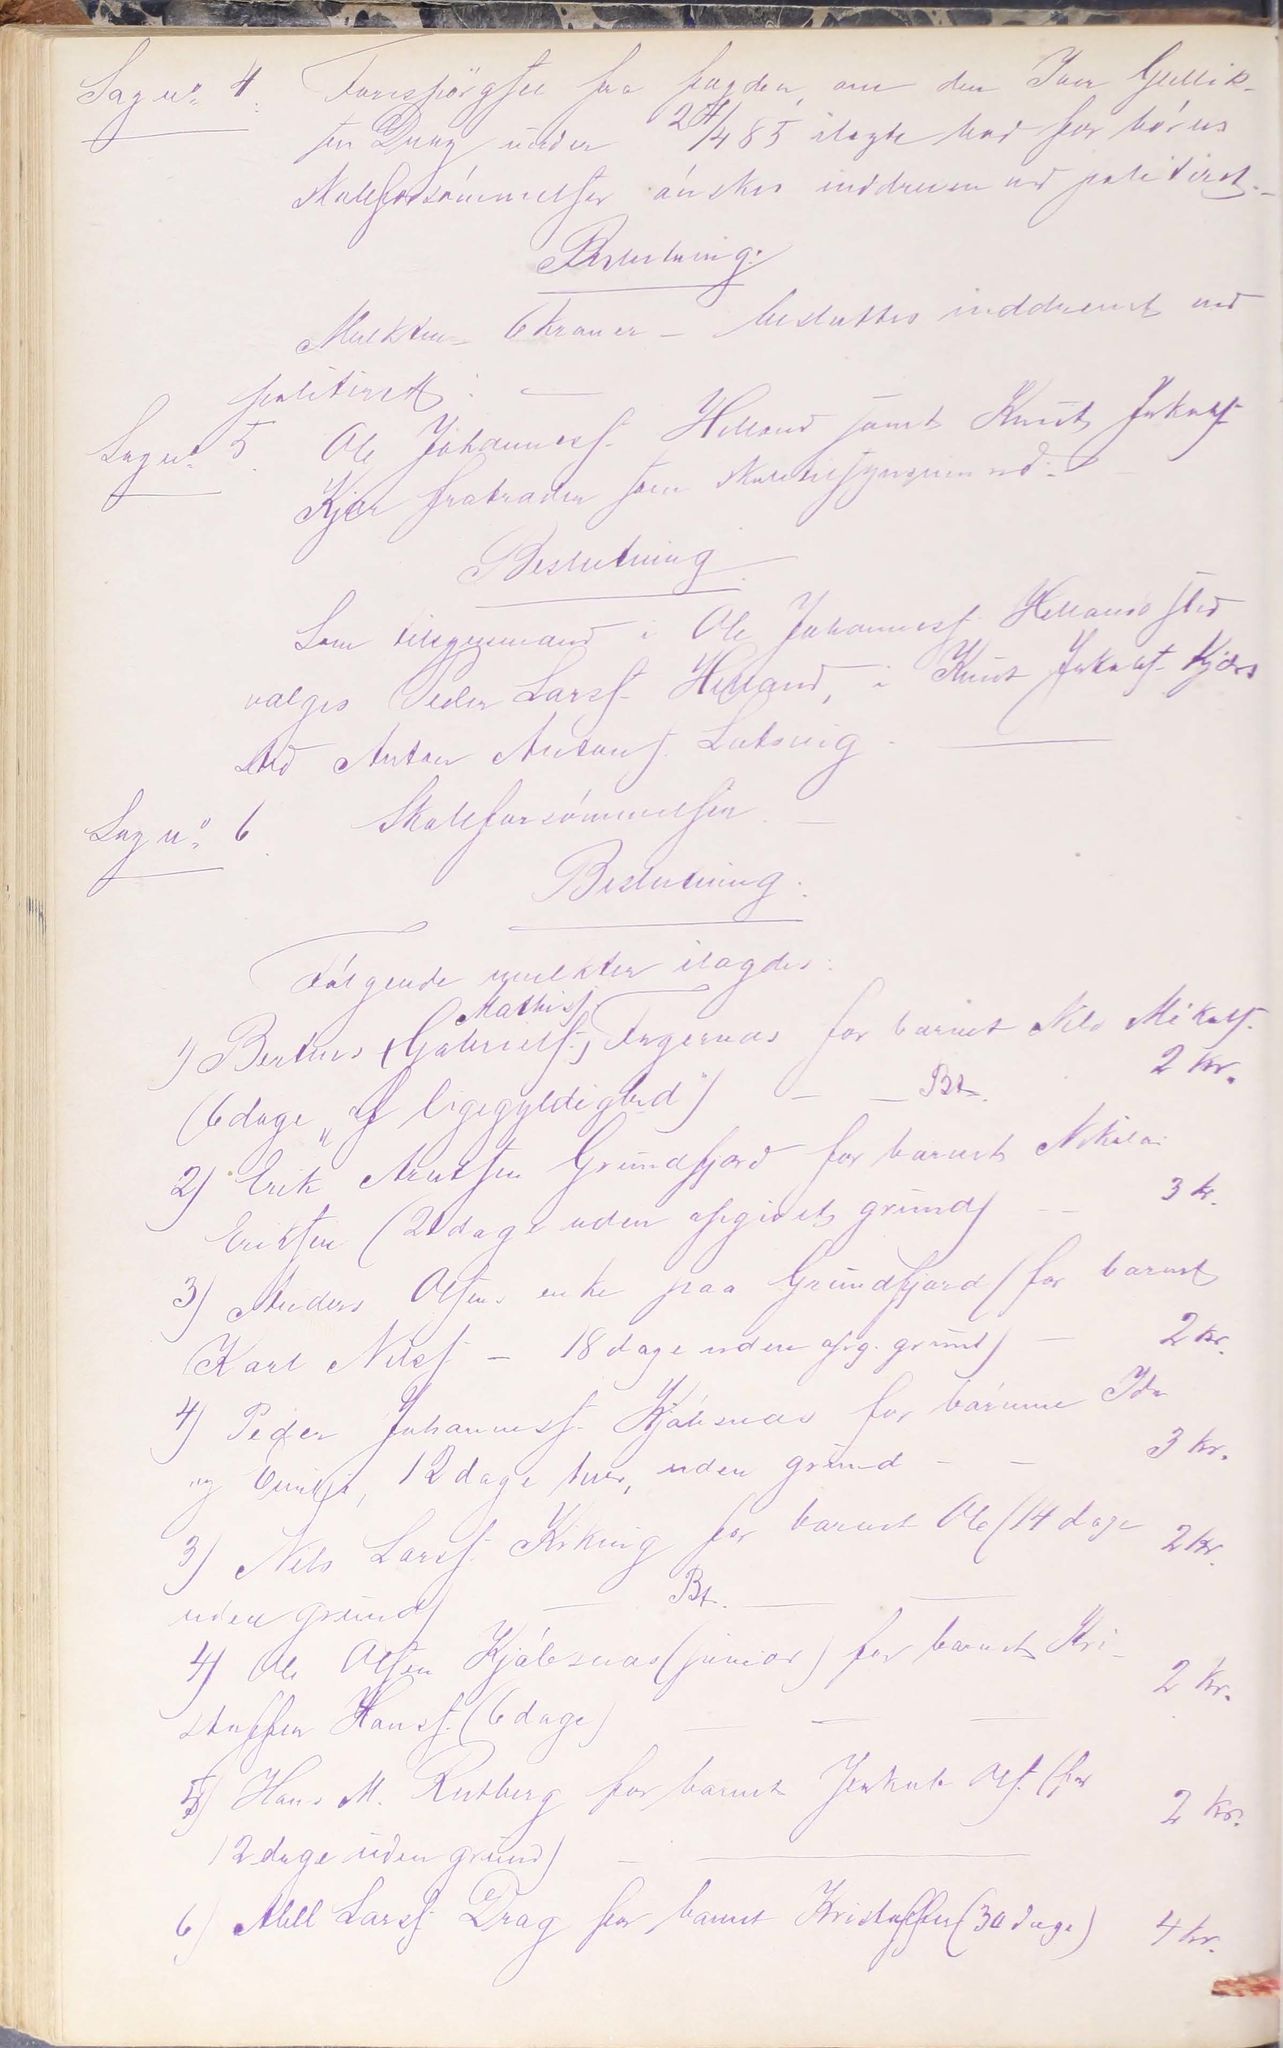 Sag nº 4. Forespörgsel fra fogden, om den Iver Gullik-
sen Drag under 24/4 85 ilagte bod for börns
skoleforsömmelser önskes inddreven ved politiret.
Beslutning:
Mulkten – 6 kroner – besluttes inddrevet ved
politiret.
Sag nº 5. Ole Johanness. Helland samt Knut Jakobs.
Kjær fratræder som skoletilsynsmænd. –
Beslutning
Som tilsynsmand i Ole Johanness. Hellands sted
vælges Peder Larss. Helland, i Knut Jakobs. Kjærs
sted Anton Antons. Leksvig.
Sag nº 6. Skoleforsömmelser. –
Beslutning:
Fölgende mulkter ilagdes:
Mathis.
1) Bertius (Gabriels.) Fagernæs for barnet Nils Mikals.
(6 dage „af ligegyldighed") – – Bt. 2 Kr.
2) Erik Arntsen Grundfjord for barnet Nikolai
Eriksen (21 dage uden opgivet grund) – – 3 kr.
3) Anders Olsens enke paa Grundfjord (for barnet
Karl Nilss. – 18 dage uden opg. grund) – 2 kr.
4) Peder Johanness. Kjöbsnæs for börnene Ida
og, 12 dage hver, uden grund – – 3 kr.
3) Nils Larss. for barnet Ole (14 dage 2 kr.
uden grund) — Bt. — —
4) Ole Olsen Kjöbsnæs (junior) for barnet Kri-
stoffer Hanss. (6 dage) — — — 2 kr.
5) Hans M. Rutberg for barnet Jakob Ols. (for
12 dage uden grund) – — 2 kr.
6) Abel Larss. Drag for barnet Kristoffer (30 dage) 4 kr.